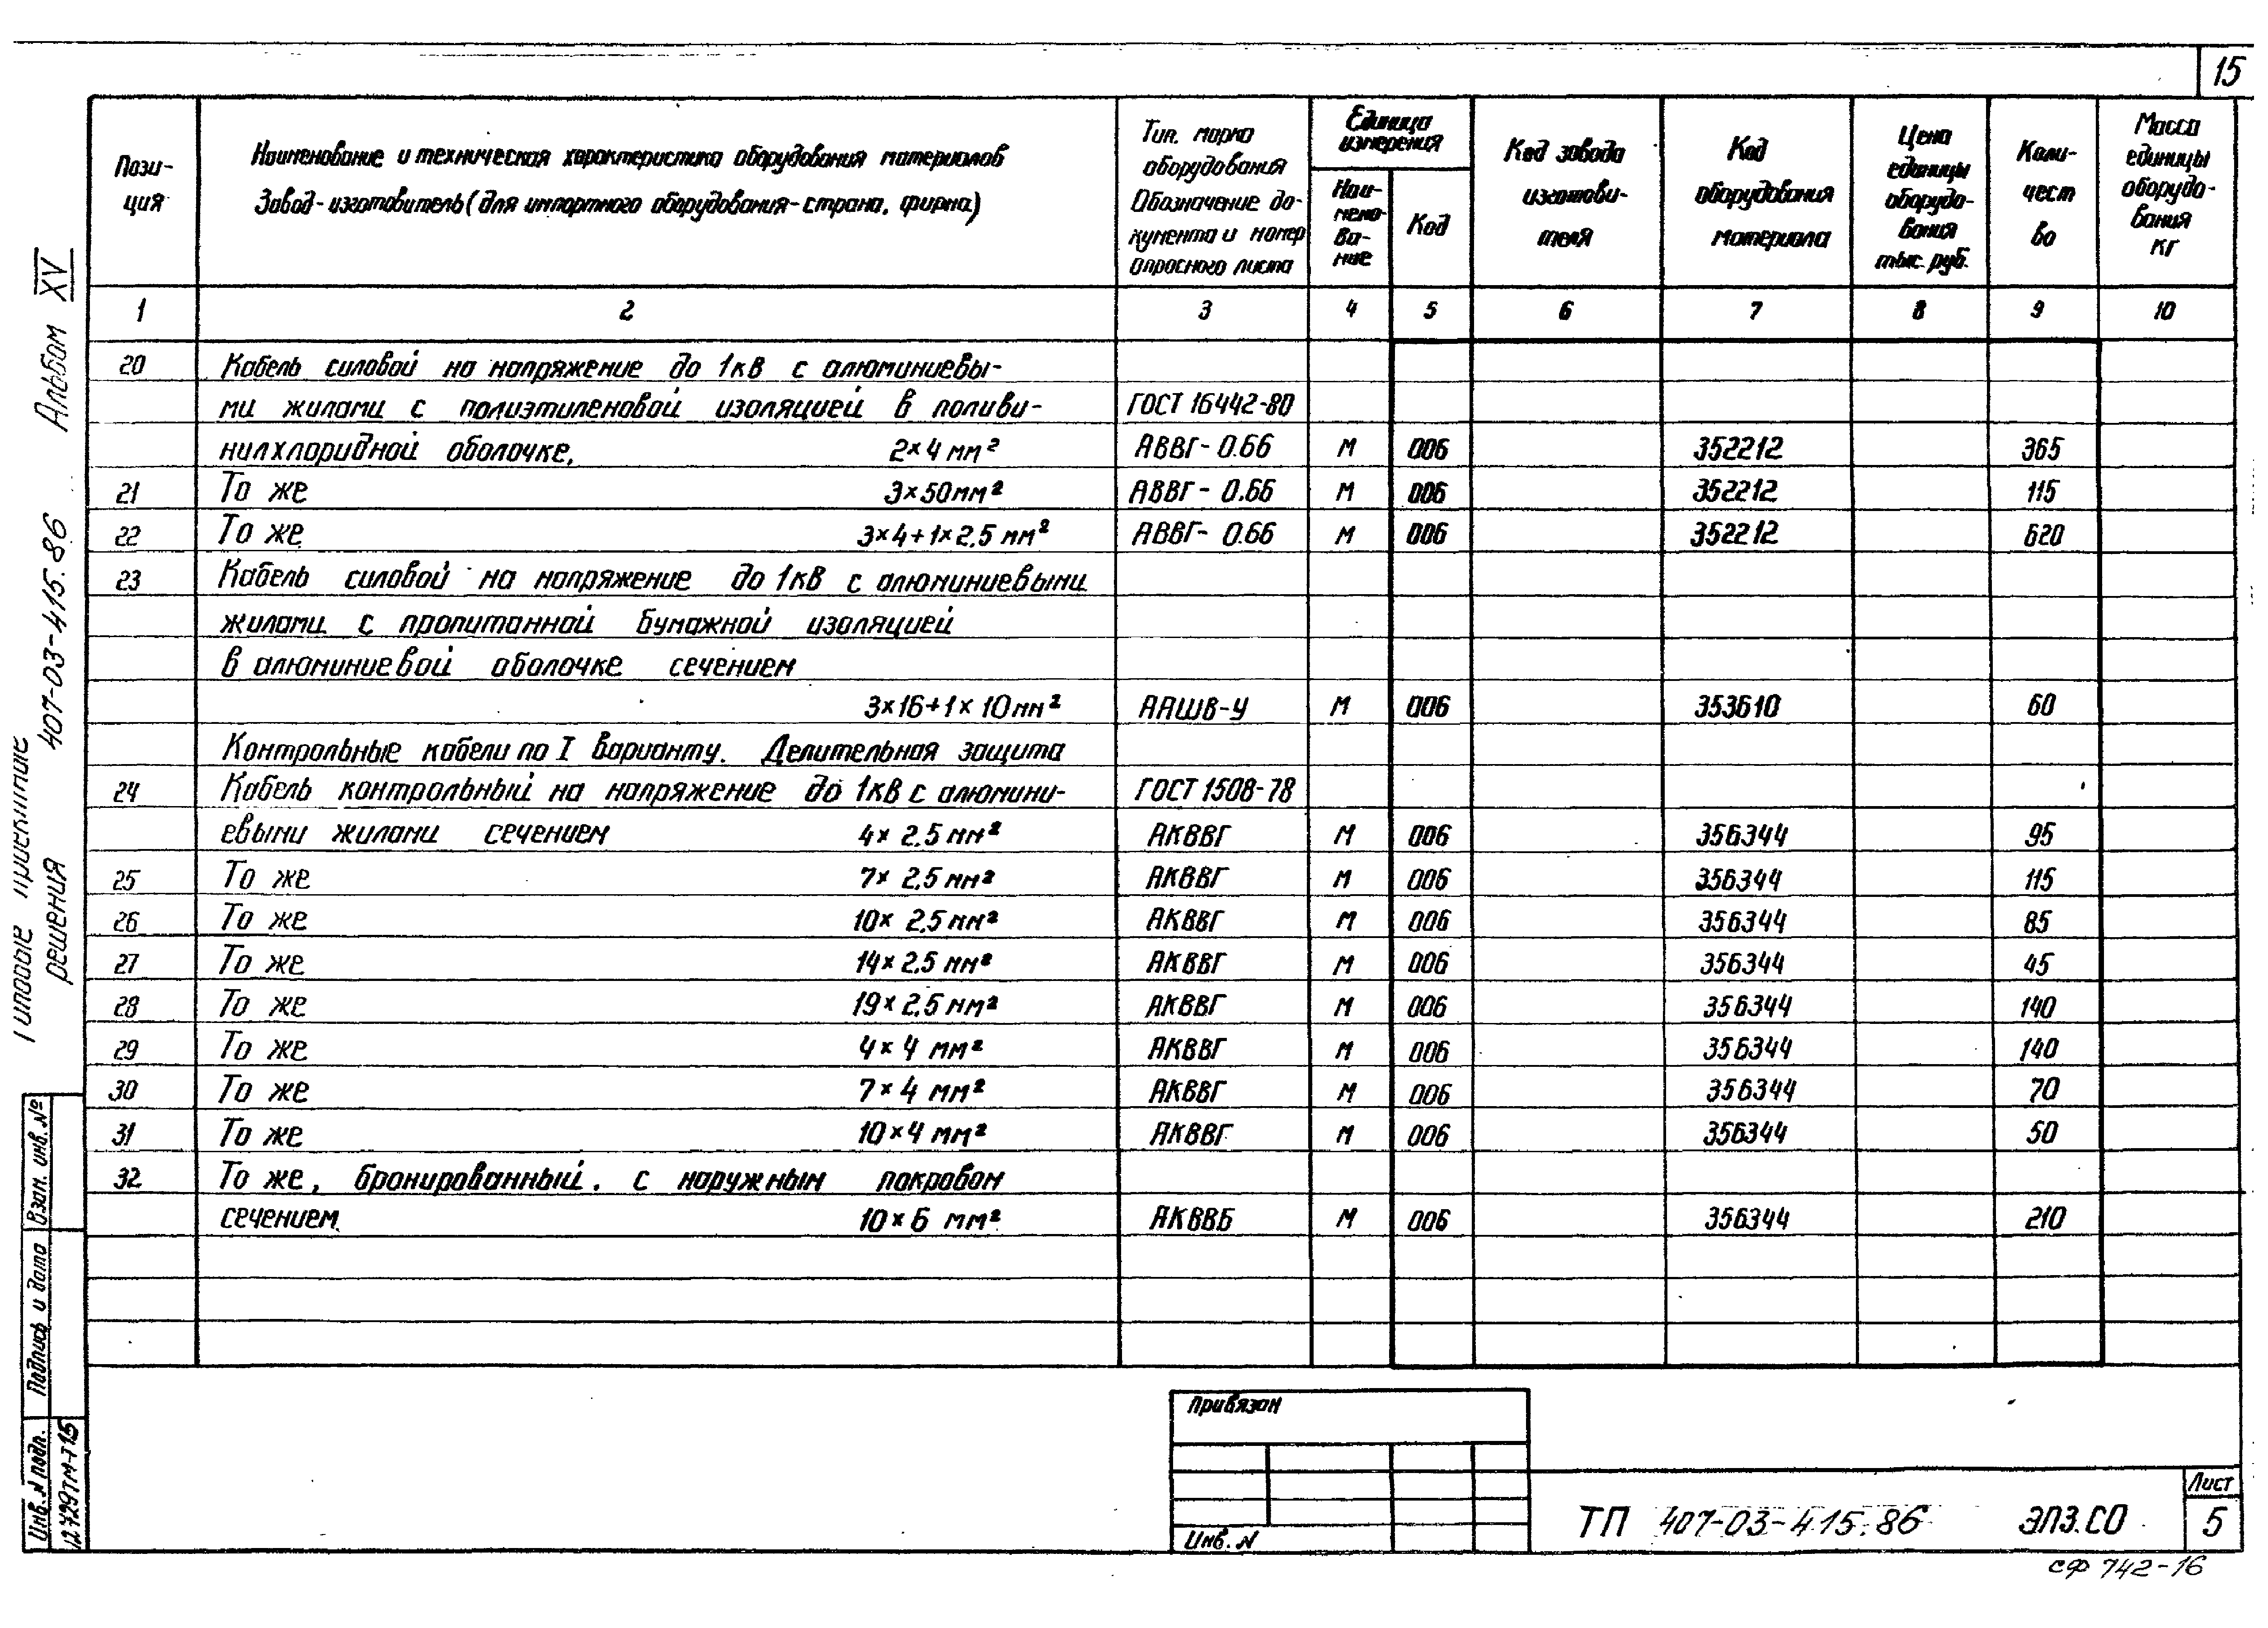 15
Пози-
ция
Наименование и техническая характеристика оборудования материалов
Завод-изготовитель (для импортного оборудования-страна, фирма)
Тип, марка
оборудования
Обозначение до-
кумента и номер
опросного листа
Единица
измерения
Наи-
мено-
ва-
ние
Код
Код завода
изготови-
теля
Код
оборудования
материала
Цена
единицы
оборудо-
вания
тыс. руб.
Коли-
чест
во
Масса
единицы
оборудо-
вания
кг
1 2 3 4 5 6 7 8 9 10
20 Кабель силовой на напряжение до 1кВ с алюминиевы-
ми жилами с полиэтиленовой изоляцией в поливи- ГОСТ 16442-80
нилхлоридной оболочке, 2×4 мм² АВВГ- 0.66 М 006 352212 365
21 То же 3×50мм² АВВГ- 0.66 М 006 352212 115
22 То же 3×4+1×2.5 мм² АВВГ- 0.66 М 006 352212 620
23 Кабель силовой на напряжение до 1кВ с алюминиевыми
жилами с пропитанной бумажной изоляцией
в алюминиевой оболочке сечением
3×16+1×10мм² ААШВ-У М 006 353610 60
Контрольные кабели по I варианту. Делительная защита
24 Кабель контрольный на напряжение до 1кВ с алюмини- ГОСТ 1508-78
евыми жилами сечением 4× 2.5 мм² АКВВГ М 006 356344 95
25 То же 7× 2.5 мм² АКВВГ М 006 356344 115
26 То же 10× 2.5 мм² АКВВГ М 006 356344 85
27 То же 14× 2.5 мм² АКВВГ М 006 356344 45
28 То же 19× 2.5 мм² АКВВГ М 006 356344 140
29 То же 4×4 мм² АКВВГ М 006 356344 140
30 То же 7×4 мм² АКВВГ М 006 356344 70
31 То же 10×4 мм² АКВВГ М 006 356344 50
32 То же, бронированный. с наружным покровом
сечением 10×6 мм² АКВВБ М 006 356344 210
Привязан
Инв. N
ТП 407-03-415.86 ЭПЗ.СО
Лист
5
СФ 742-16
Типовые проектные
решения
407-03-415.86
Альбом XV
Взам. инв. №
Подпись и дата
Инв. N подл.
12729тм-т15